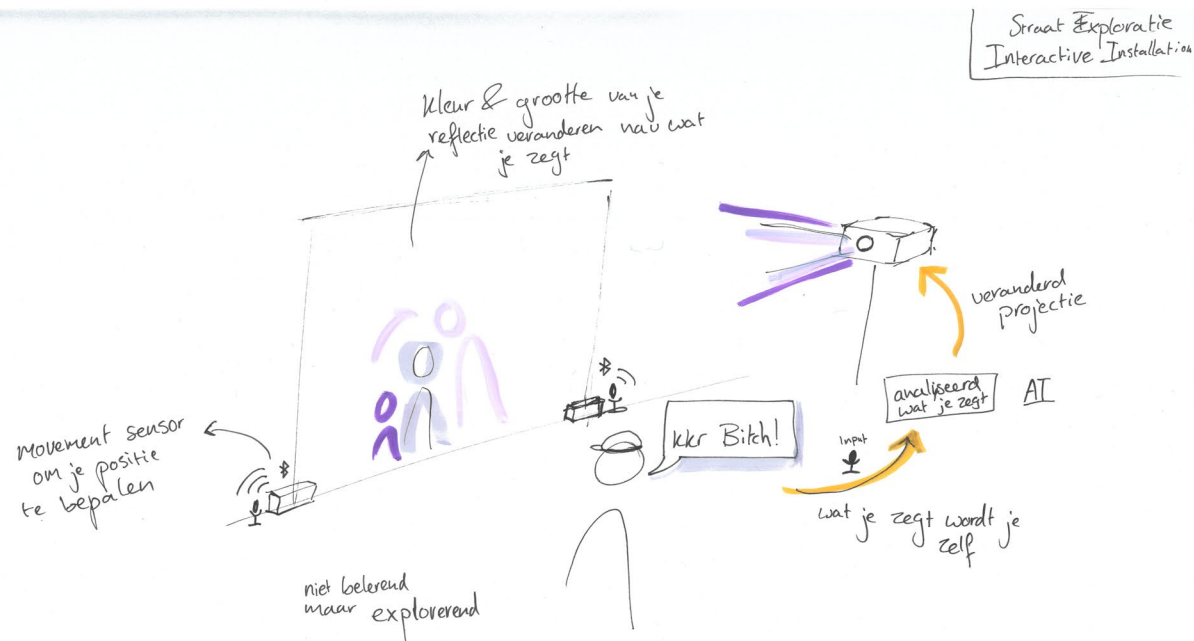 Straat Exploratie
Interactive Installation
Kleur & grootte van je
reflectie veranderen nav wat
je zegt
veranderd
projectie
analiseerd
wat je zegt
AI
kkr Bitch!
Input
wat je zegt wordt je
zelf
movement sensor
om je positie
te bepalen
niet belerend
maar exploverend